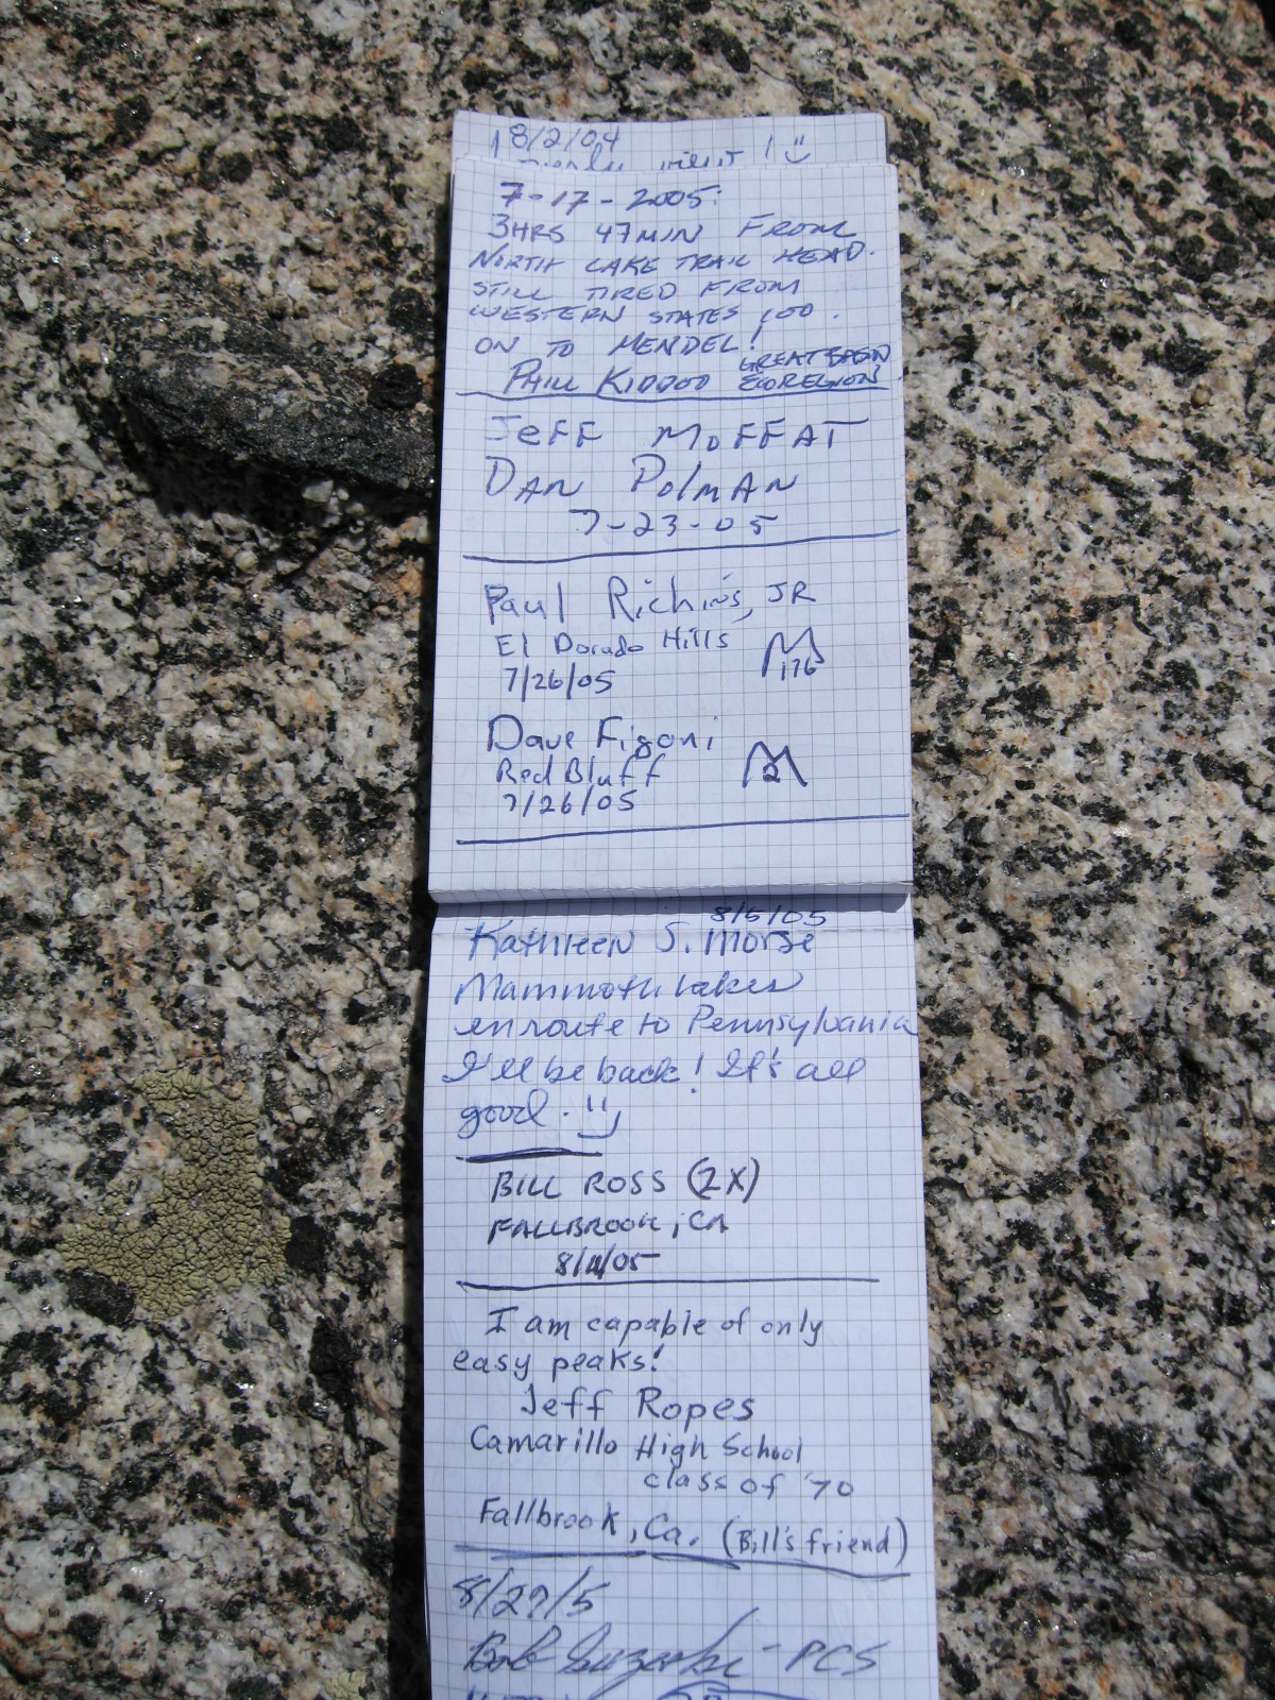 8/2/04
7-17-2005:
3HRS 47MIN FROM
NORTH LAKE TRAIL HEAD.
STILL TIRED FROM
WESTERN STATES 100.
ON TO MENDEL!
PHIL KIDDOO GREAT BASIN
ECOREGION
Jeff MOFFAT
DAN POlMAN
7-23-05
Paul Richins, JR
El Dorado Hills
176
7/26/05
Dave Figoni
Red Bluff
2
7/26/05
8/5/05
Kathleen S. Morse
Mammoth Lakes
enroute to Pennsylvania
I'll be back! It's all
good.
BILL ROSS (2X)
FALLBROOK, CA
8/11/05
I am capable of only
easy peaks!
Jeff Ropes
Camarillo High School
class of '70
Fallbrook, Ca. (Bill's friend)
8/27/5
Bob Suzuki - PCS